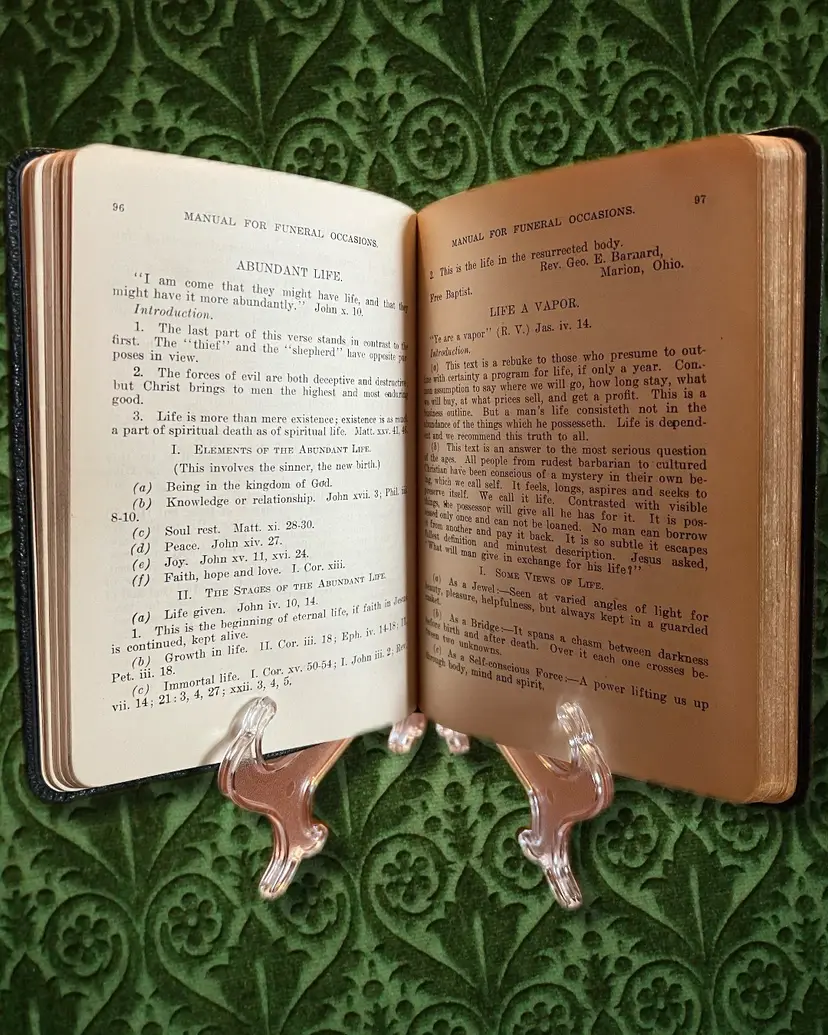 96
MANUAL FOR FUNERAL OCCASIONS.
ABUNDANT LIFE.
"I am come that they might have life, and that they
might have it more abundantly." John x. 10.
Introduction.
1. The last part of this verse stands in contrast to the
first. The "thief" and the "shepherd" have opposite
poses in view.
2. The forces of evil are both deceptive and destructive,
but Christ brings to men the highest and most enduring
good.
3. Life is more than mere existence; existence is as
a part of spiritual death as of spiritual life. Matt. xxv. 41,
I. ELEMENTS OF THE ABUNDANT LIFE.
(This involves the sinner, the new birth.)
(a) Being in the kingdom of God.
(b) Knowledge or relationship. John xvii. 3; Phil.
8-10.
(c) Soul rest. Matt. xi. 28-30.
(d) Peace. John xiv. 27.
(e) Joy. John xv. 11, xvi. 24.
(f) Faith, hope and love. I. Cor. xiii.
II. THE STAGES OF THE ABUNDANT LIFE.
(a) Life given. John iv. 10, 14.
1. This is the beginning of eternal life, if faith in Jesus
is continued, kept alive.
(b) Growth in life. II. Cor. iii. 18; Eph. iv. 14-18;
Pet. iii. 18.
(c) Immortal life. I. Cor. xv. 50-54; I. John iii. 2; Rev.
vii. 14; 21:3, 4, 27; xxii. 3, 4, 5.
97
MANUAL FOR FUNERAL OCCASIONS.
2. This is the life in the resurrected body.
Rev. Geo. E. Barnard,
Marion, Ohio.
Free Baptist.
LIFE A VAPOR.
"Ye are a vapor" (R. V.) Jas. iv. 14.
Introduction.
(a) This text is a rebuke to those who presume to out-
with certainty a program for life, if only a year. Com-
assumption to say where we will go, how long stay, what
we will buy, at what prices sell, and get a profit. This is a
business outline. But a man's life consisteth not in the
abundance of the things which he possesseth. Life is depend-
and we recommend this truth to all.
(b) This text is an answer to the most serious question
of the ages. All people from rudest barbarian to cultured
Christian have been conscious of a mystery in their own be-
which we call self. It feels, longs, aspires and seeks to
preserve itself. We call it life. Contrasted with visible
things, the possessor will give all he has for it. It is pos-
only once and can not be loaned. No man can borrow
from another and pay it back. It is so subtle it escapes
fullest definition and minutest description. Jesus asked,
"What will man give in exchange for his life?"
I. SOME VIEWS OF LIFE.
(a) As a Jewel:—Seen at varied angles of light for
beauty, pleasure, helpfulness, but always kept in a guarded
casket.
(b) As a Bridge:—It spans a chasm between darkness
before birth and after death. Over it each one crosses be-
tween two unknowns.
(c) As a Self-conscious Force:—A power lifting us up
through body, mind and spirit.